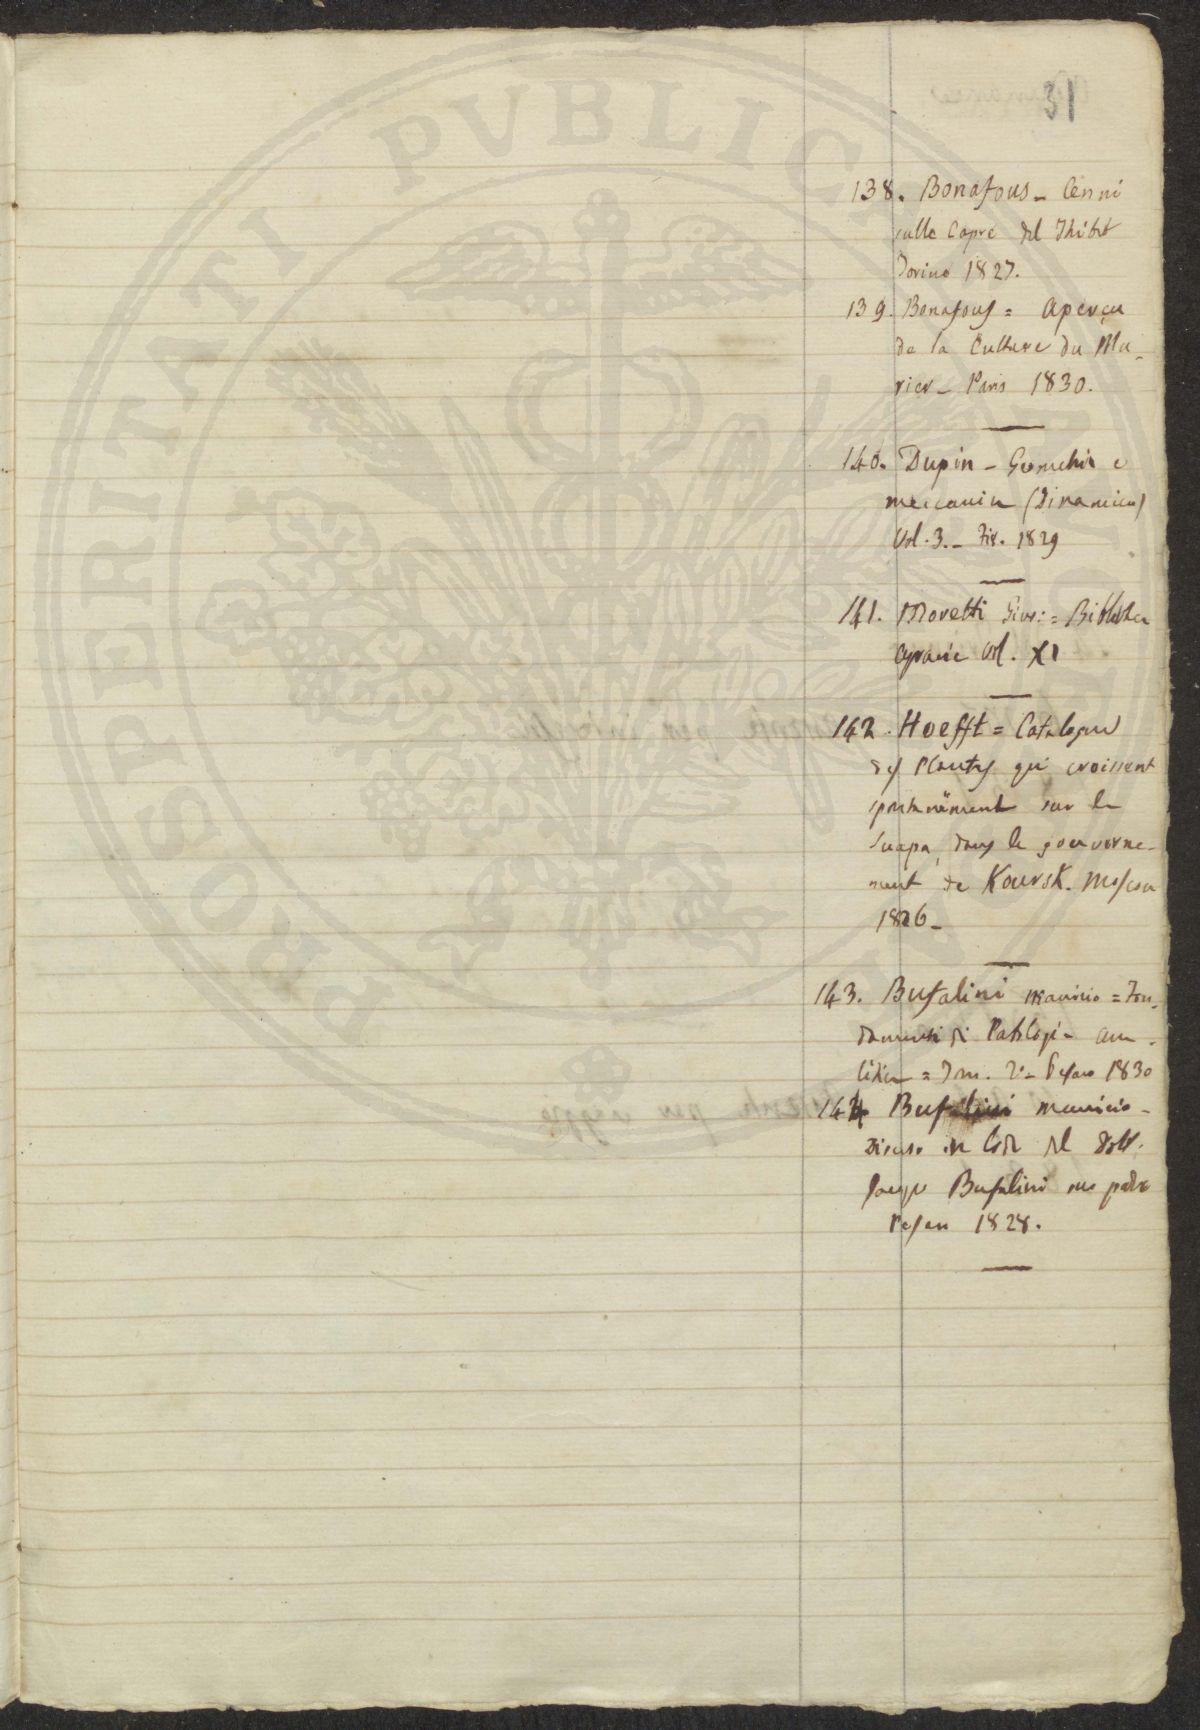 31
138. Bonafous - Cenni
sulle Capre del Thibet
Torino 1827.
139. Bonafous = Aperçu
de la Culture du Mu-
rier - Paris 1830.
140. Dupin - Geometria e
meccanica (Dinamica)
Vol. 3. - Fir. 1829
141. Moretti Gius: = Biblioteca
agraria Vol. XI
142. Hoefft = Catalogue
des Plantes qui croissent
spontanément sur la
Suapa, dans le gouverne-
ment de Koursk. Moscou
1826 -
143. Bufalini Maurizio = Fon-
damenti di Patologia ana-
litica = Tom. 2° - Pesaro 1830
144. Bufalini Maurizio -
Discorso in lode del Dott.
Bufalini suo padre
Pesaro 1828.
PROSPERITATI PVBLICAE